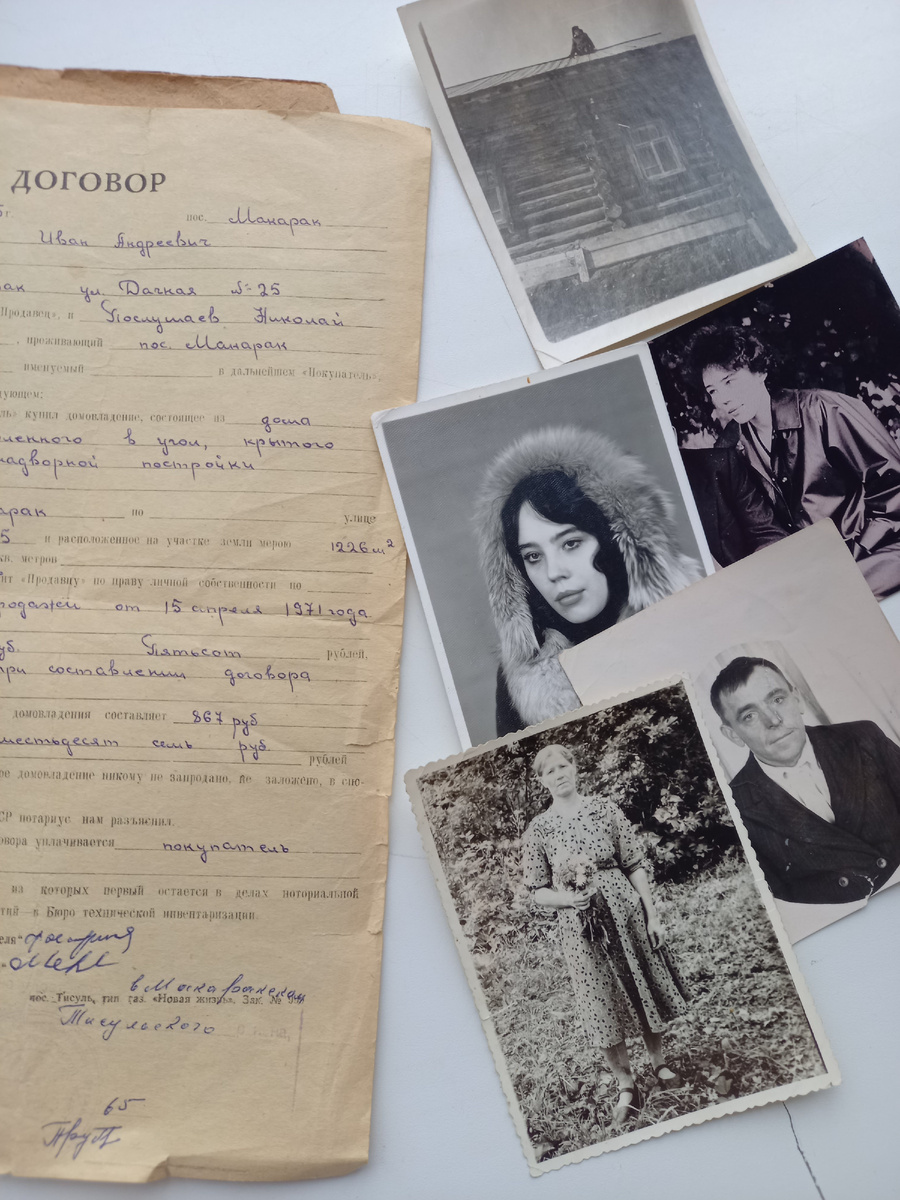 ДОГОВОР
5 г. пос. Макарак
Иван Андреевич
рак ул. Дачная №-25
Продавец», и Послушаев Николай
, проживающий пос. Макарак
именуемый в дальнейшем «Покупатель»,
дующем:
ль» купил домовладение, состоящее из дома
ленного в угол, крытого
надворной постройки
арак по улице
5 и расположенное на участке земли мерою 1226 м²
кв. метров
ит «Продавцу» по праву личной собственности по
родажи от 15 апреля 1971 года
уб. Пятьсот рублей,
при составлении договора
домовладения составляет 867 руб
шестьдесят семь руб рублей
ое домовладение никому не запродано, не заложено, в спо-
СР нотариус нам разъяснил.
овора уплачивается покупатель
из которых первый остается в делах ноториальной
тий—в Бюро технической инвентаризации.
еля"
в Макаракском
пос. Тисуль, тип газ. «Новая жизнь». Зак. №
Тисульского
65